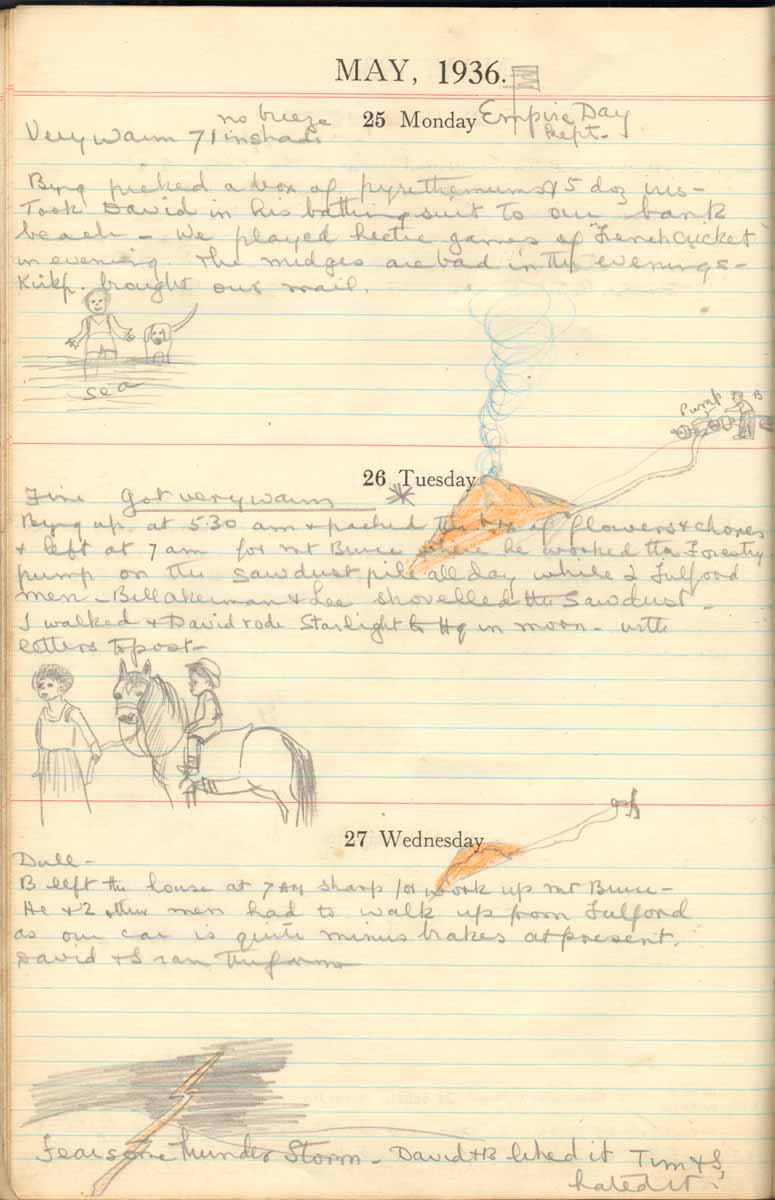 MAY, 1936.
25 Monday Empire Day
kept.
no breeze
Very warm 71 in shade
Byng picked a box of pyrethemums & 5 doz iris -
Took David in his bathing suit to our bank
beach - We played hectic games of "French Cricket"
in evening. The midges are bad in the evenings -
Kirkp. brought our mail.
sea
Pump
B
26 Tuesday
Fine Got very warm
Byng up at 5.30 am & packed the box of flowers & chores
& left at 7 am for Mt Bruce where he worked the Forestry
pump on the sawdust pile all day while 2 Fulford
men - Bill Akerman & Lee shovelled the sawdust -
I walked & David rode Starlight to Hq in morn - with
letters to post -
27 Wednesday
Dull -
B left the house at 7 AM sharp for work up Mt Bruce -
He & 2 other men had to walk up from Fulford
as our car is quite minus brakes at present.
David & I ran the farm
Fearsome Thunder Storm - David & B liked it Tim & I
hated it.